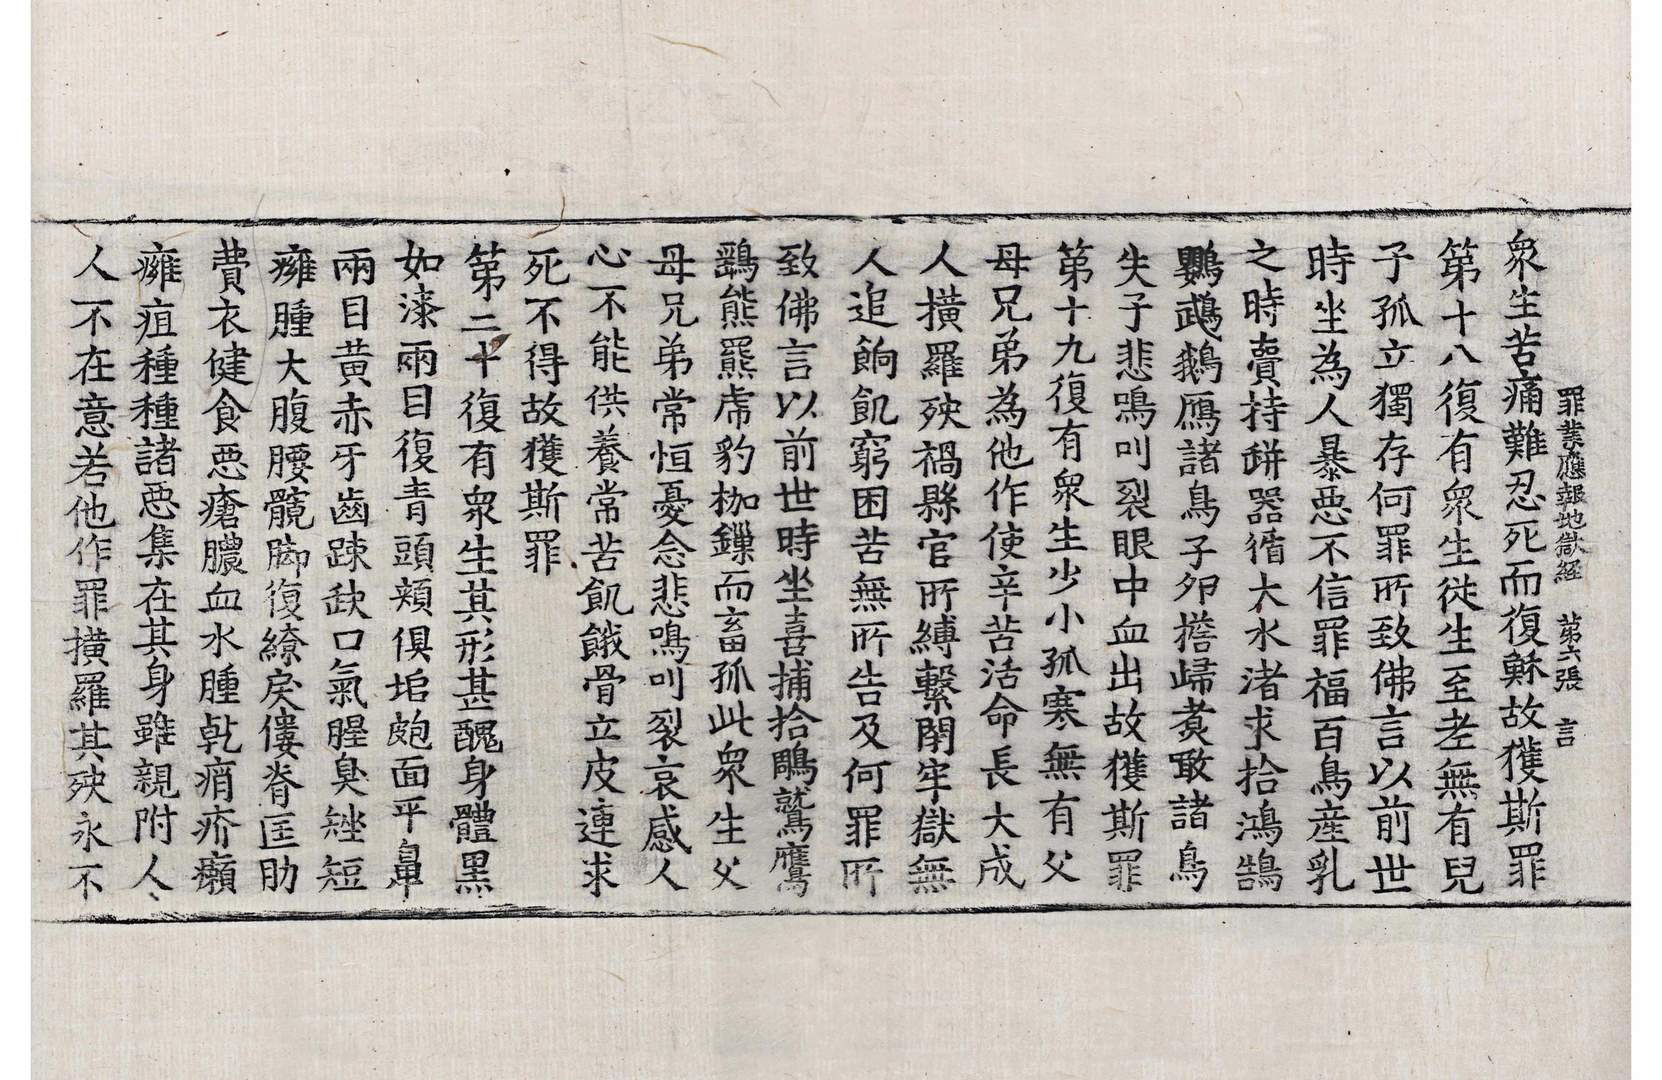 罪業應報地獄經　第六張　言
衆生苦痛難忍死而復穌故獲斯罪
第十八復有衆生從生至老無有兒
子孤立獨存何罪所致佛言以前世
時坐為人暴惡不信罪福百鳥産乳
之時賣持缾器循大水渚求拾鴻鵠
鸚鵡鵝鴈諸鳥子夘擔歸煑噉諸鳥
失子悲鳴叫裂眼中血出故獲斯罪
第十九復有衆生少小孤寒無有父
母兄弟為他作使辛苦活命長大成
人橫羅殃禍縣官所縛繫閉牢獄無
人追餉飢窮困苦無所告及何罪所
致佛言以前世時坐喜捕拾鵰鷲鷹
鷂熊羆虎豹枷鏁而畜孤此衆生父
母兄弟常恒憂念悲鳴叫裂哀感人
心不能供養常苦飢餓骨立皮連求
死不得故獲斯罪
第二十復有衆生其形甚醜身體黑
如漆兩目復青頭頰俱垖皰面平鼻
兩目黄赤牙齒踈缺口氣腥臭矬短
癰腫大腹腰髖脚復繚戾僂脊匡肋
費衣健食惡瘡膿血水腫乹痟疥癩
癰疽種種諸惡集在其身雖親附人
人不在意若他作罪撗羅其殃永不